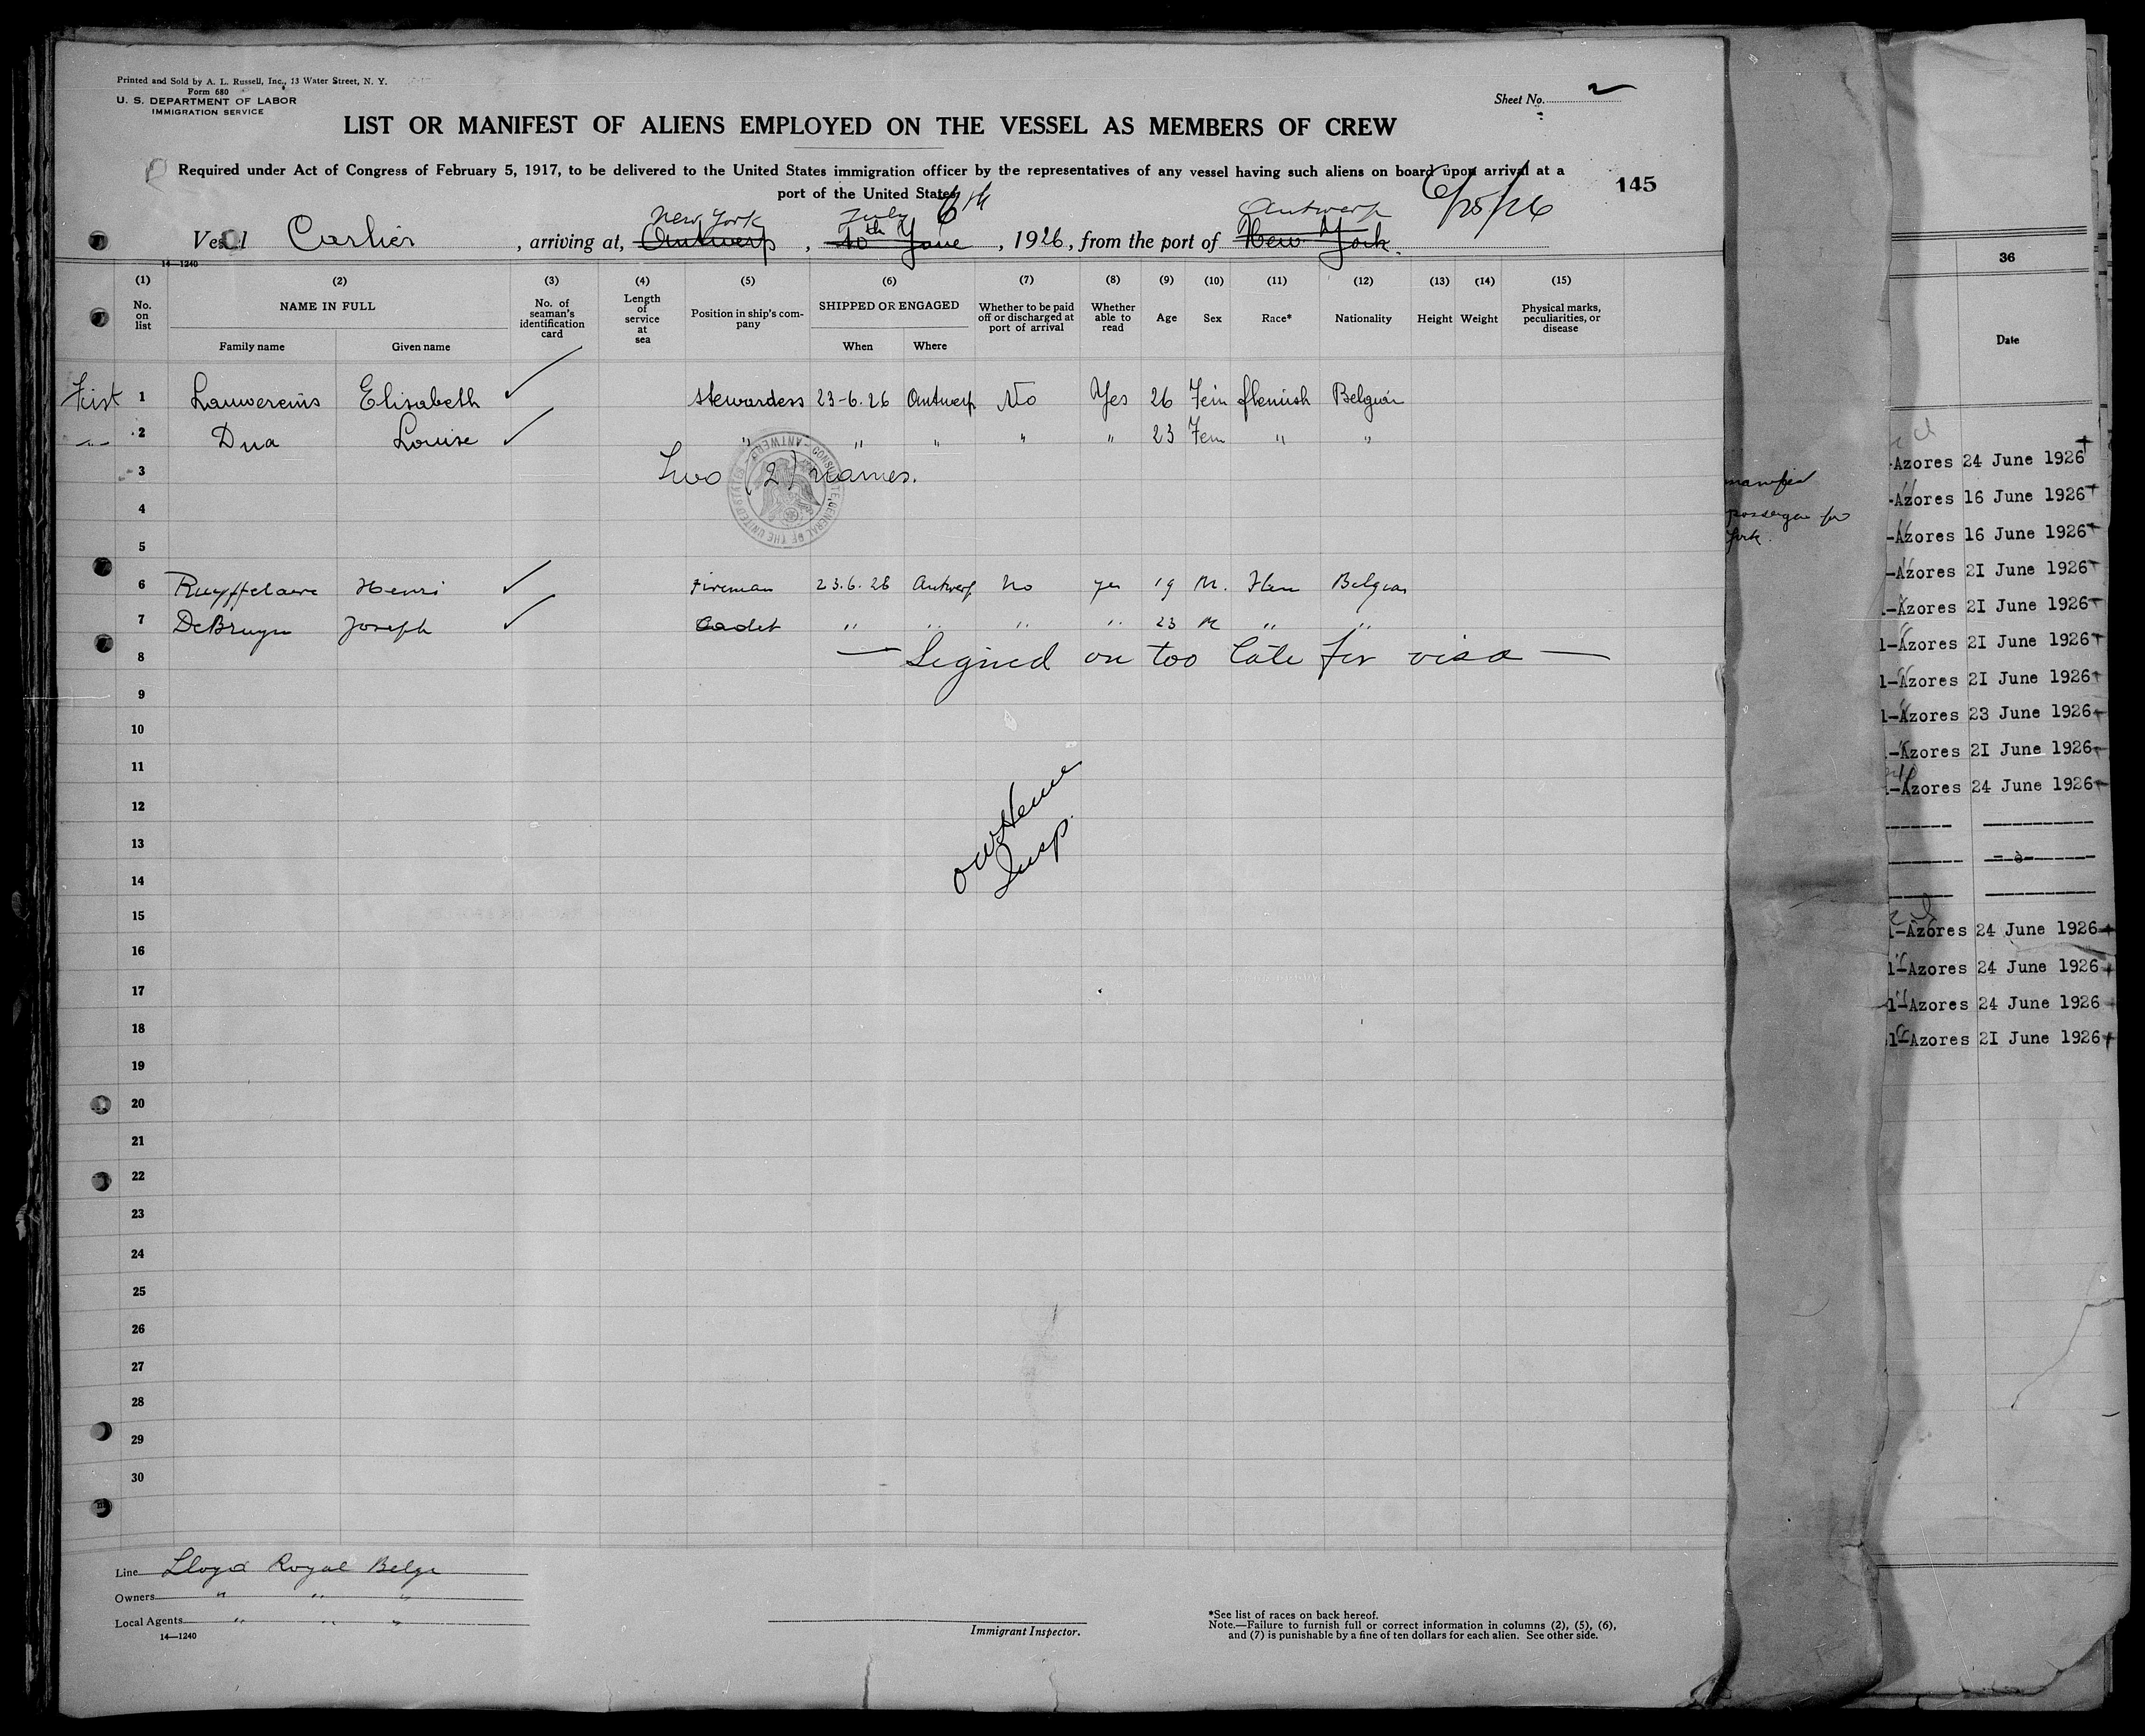 Printed and Sold by A. L. Russell, Inc., 13 Water Street, N. Y.
Form 680
U. S. DEPARTMENT OF LABOR
IMMIGRATION SERVICE
Sheet No. 2
LIST OR MANIFEST OF ALIENS EMPLOYED ON THE VESSEL AS MEMBERS OF CREW
Required under Act of Congress of February 5, 1917, to be delivered to the United States immigration officer by the representatives of any vessel having such aliens on board upon arrival at a
port of the United States
145
6/25/26
New York July 6th Antwerp
Vessel Carlier, arriving at, Antwerp, 10th June, 1926, from the port of New York.
14—1240
(1) (2) (3) (4) (5) (6) (7) (8) (9) (10) (11) (12) (13) (14) (15)
No. on list NAME IN FULL No. of seaman's identification card Length of service at sea Position in ship's company SHIPPED OR ENGAGED Whether to be paid off or discharged at port of arrival Whether able to read Age Sex Race* Nationality Height Weight Physical marks, peculiarities, or disease
Family name Given name When Where
First 1 Lauwereins Elisabeth stewardess 23-6.26 Antwerp No Yes 26 Fem flemish Belgian
" 2 Dua Louise " " " " " 23 Fem " "
3 Two (2) names.
4
5
6 Ruyffelaere Henri Fireman 23.6.26 Antwerp No yes 19 M. Flem Belgian
7 DeBruyn Joseph Cadet " " " " 23 M " "
8 — Signed on too late for visa —
9
10
11
12
13
14
Insp.
15
16
17
18
19
20
21
22
23
24
25
26
27
28
29
30
Line Lloyd Royal Belge
Owners " " "
Local Agents " " "
14—1240
Immigrant Inspector.
*See list of races on back hereof.
Note.—Failure to furnish full or correct information in columns (2), (5), (6),
and (7) is punishable by a fine of ten dollars for each alien. See other side.
manifest
passenger for
York.
36
Date
-Azores 24 June 1926
-Azores 16 June 1926
-Azores 16 June 1926
-Azores 21 June 1926
-Azores 21 June 1926
1-Azores 21 June 1926
1-Azores 21 June 1926
1-Azores 23 June 1926
-Azores 21 June 1926
-Azores 24 June 1926
-Azores 24 June 1926
1-Azores 24 June 1926
1-Azores 24 June 1926
1-Azores 21 June 1926